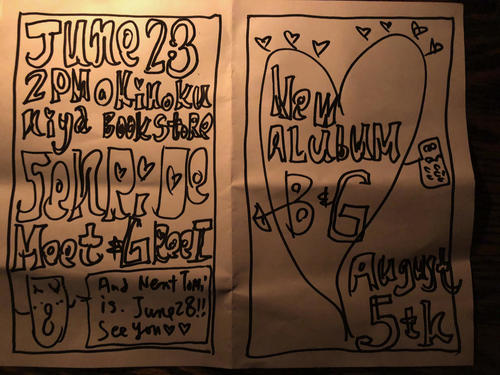 June 23
2PM @ Kinoku
niya BOOKSTORE
SenRi Oe
Meet & GReeT
And Next Tomi
is. June 28!!
See You♡♡
New
ALUBUM
B&G
August
5th